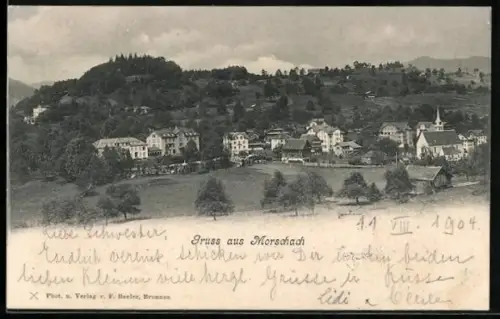 Gruss aus Morschach
11 VIII. 1904.
Liebe Schwester,
Endlich vereint, schicken wir Dir die beiden
lieben Kleinen viele herzl. Grüsse u. Küsse
Lidi u. Cécile
Phot. u. Verlag v. F. Beeler, Brunnen